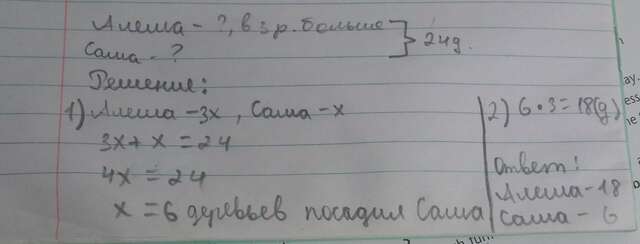 Алеша - ?, в 3 р. больше
Саша - ?
} 24д.
Решение:
1) Алеша - 3х, Саша - х
3х + х = 24
4х = 24
х = 6 деревьев посадил Саша
2) 6 • 3 = 18(д)
Ответ:
Алеша - 18
Саша - 6